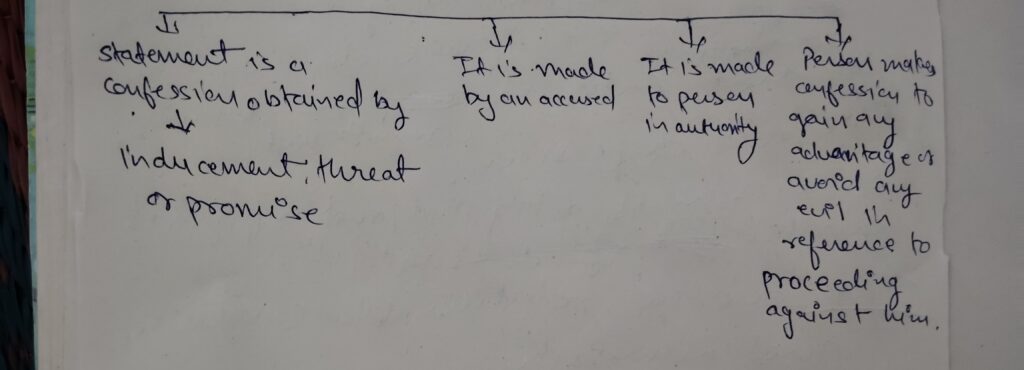 Statement is a
confession obtained by
inducement, threat
or promise
It is made
by an accused
It is made
to person
in authority
Person makes
confession to
gain any
advantage or
avoid any
evil in
reference to
proceeding
against him.